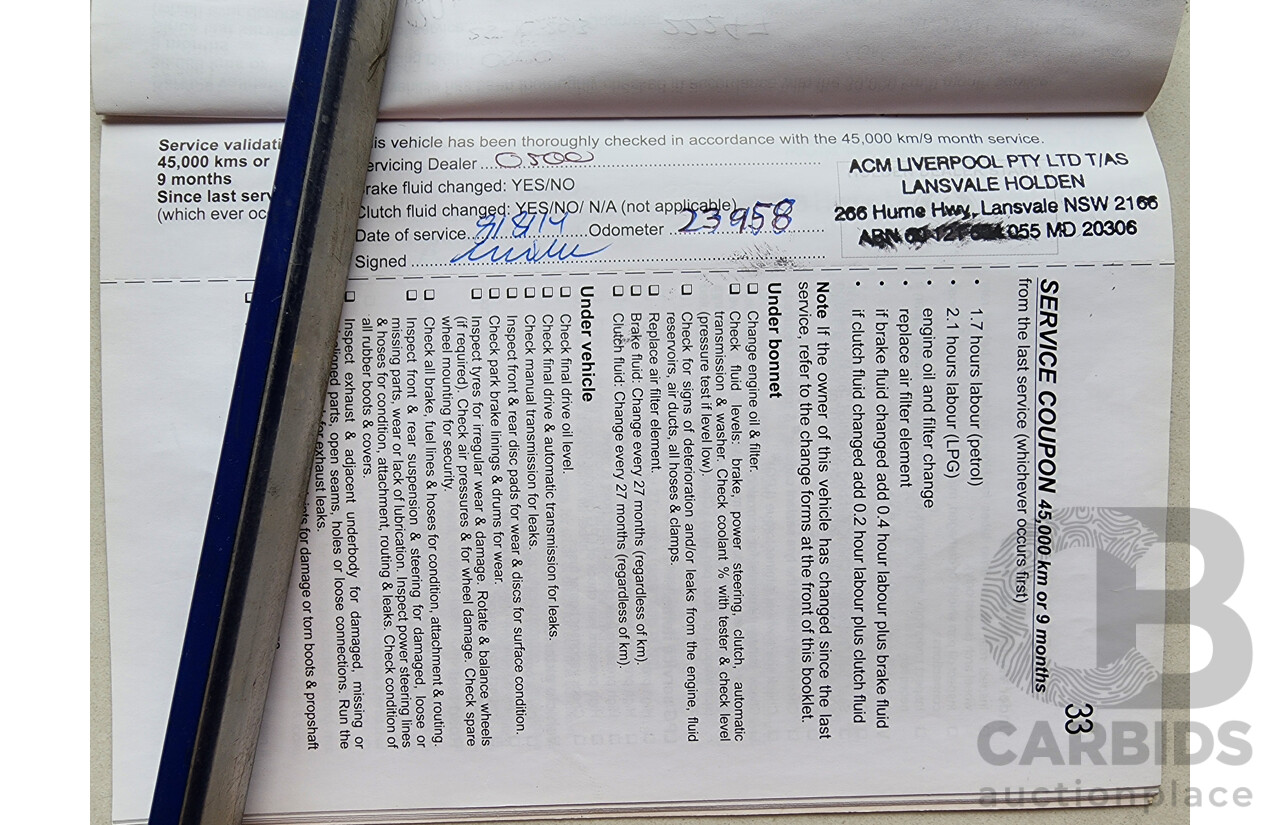 Service validati
45,000 kms or
9 months
Since last serv
(which ever oc
is vehicle has been thoroughly checked in accordance with the 45,000 km/9 month service.
ervicing Dealer 0500
rake fluid changed: YES/NO
Clutch fluid changed: YES/NO/ N/A (not applicable)
Date of service 9/8/14 Odometer 23958
Signed
ACM LIVERPOOL PTY LTD T/AS
LANSVALE HOLDEN
266 Hume Hwy, Lansvale NSW 2166
ABN 055 MD 20306
33
SERVICE COUPON 45,000 km or 9 months
from the last service (whichever occurs first)
• 1.7 hours labour (petrol)
• 2.1 hours labour (LPG)
• engine oil and filter change
• replace air filter element
• if brake fluid changed add 0.4 hour labour plus brake fluid
• if clutch fluid changed add 0.2 hour labour plus clutch fluid
Note If the owner of this vehicle has changed since the last
service, refer to the change forms at the front of this booklet.
Under bonnet
❑ Change engine oil & filter.
❑ Check fluid levels: brake, power steering, clutch, automatic
transmission & washer. Check coolant % with tester & check level
(pressure test if level low).
❑ Check for signs of deterioration and/or leaks from the engine, fluid
reservoirs, air ducts, all hoses & clamps.
❑ Replace air filter element.
❑ Brake fluid: Change every 27 months (regardless of km).
❑ Clutch fluid: Change every 27 months (regardless of km).
Under vehicle
❑ Check final drive oil level.
❑ Check final drive & automatic transmission for leaks.
❑ Check manual transmission for leaks.
❑ Inspect front & rear disc pads for wear & discs for surface condition.
❑ Check park brake linings & drums for wear.
❑ Inspect tyres for irregular wear & damage. Rotate & balance wheels
(if required). Check air pressures & for wheel damage. Check spare
wheel mounting for security.
❑ Check all brake, fuel lines & hoses for condition, attachment & routing.
❑ Inspect front & rear suspension & steering for damaged, loose or
missing parts, wear or lack of lubrication. Inspect power steering lines
& hoses for condition, attachment, routing & leaks. Check condition of
all rubber boots & covers.
❑ Inspect exhaust & adjacent underbody for damaged, missing or
parts, open seams, holes or loose connections. Run the
for exhaust leaks.
for damage or torn boots & propshaft
CARBIDS
auctionplace